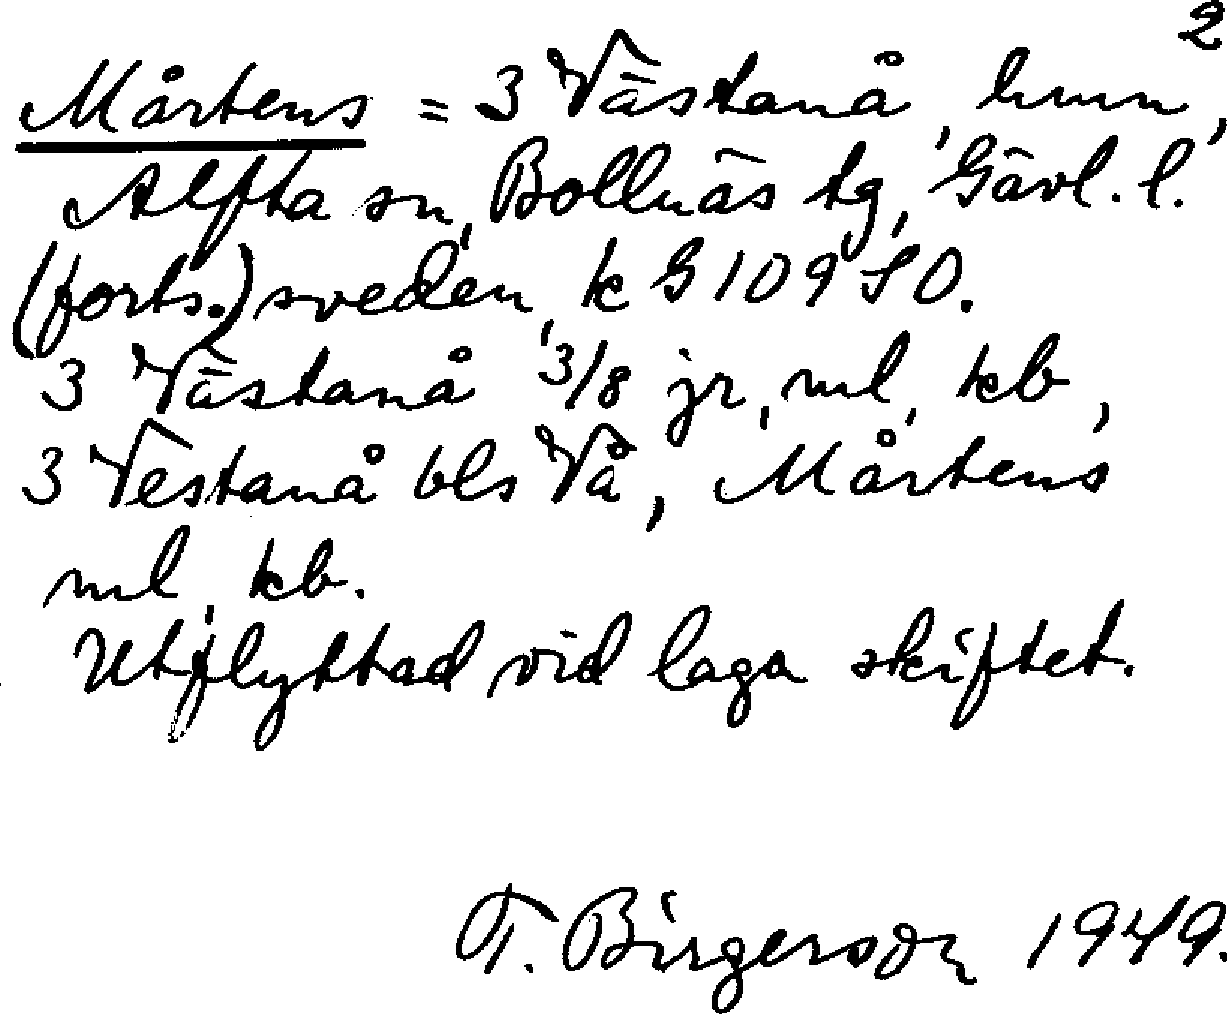 2
Mårtens = 3 Västanå, hmn,
Alfta sn, Bollnäs tg, Gävl. l.
(forts.) sveden, k G 109 SO.
3 Västanå 3/8 jr, ml, kb,
3 Vestanå bls Vå, Mårtens
ml, kb.
Utflyttad vid laga skiftet.
T. Birgerson 1949.